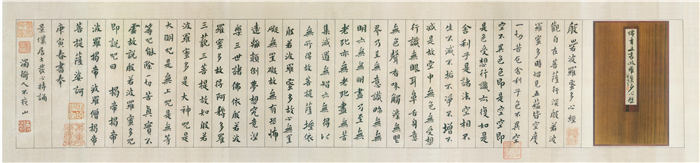 般若波羅蜜多心經
觀自在菩薩行深般若波
羅蜜多時照見五蘊皆空度
一切苦厄舍利子色不異空
空不異色色即是空空即
是色受想行識亦復如是
舍利子是諸法空相不
生不滅不垢不淨不增不
減是故空中無色無受想
行識無眼耳鼻舌身意
無色聲香味觸法無眼
界乃至無意識界無無
明亦無無明盡乃至無
老死亦無老死盡無苦
集滅道無智亦無得以
無所得故菩提薩埵依
般若波羅蜜多故心無罣
礙無罣礙故無有恐怖
遠離顛倒夢想究竟涅
槃三世諸佛依般若波
羅蜜多故得阿耨多羅
三藐三菩提故知般若
波羅蜜多是大神咒是
大明咒是無上咒是無等
等咒能除一切苦真實不
虛故說般若波羅蜜多咒
即說咒曰 揭帝揭帝
波羅揭帝 波羅僧揭帝
菩提薩婆訶
庚寅春書奉